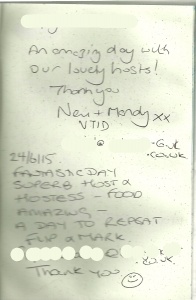 An amazing day with
our lovely hosts!
Thank you
Nevi + Mandy xx
VTID
.G.uk
.co.uk
24/6/15
FANTASTIC DAY
SUPERB HOST &
HOSTESS - FOOD
AMAZING -
A DAY TO REPEAT
& MARK.
Thank you